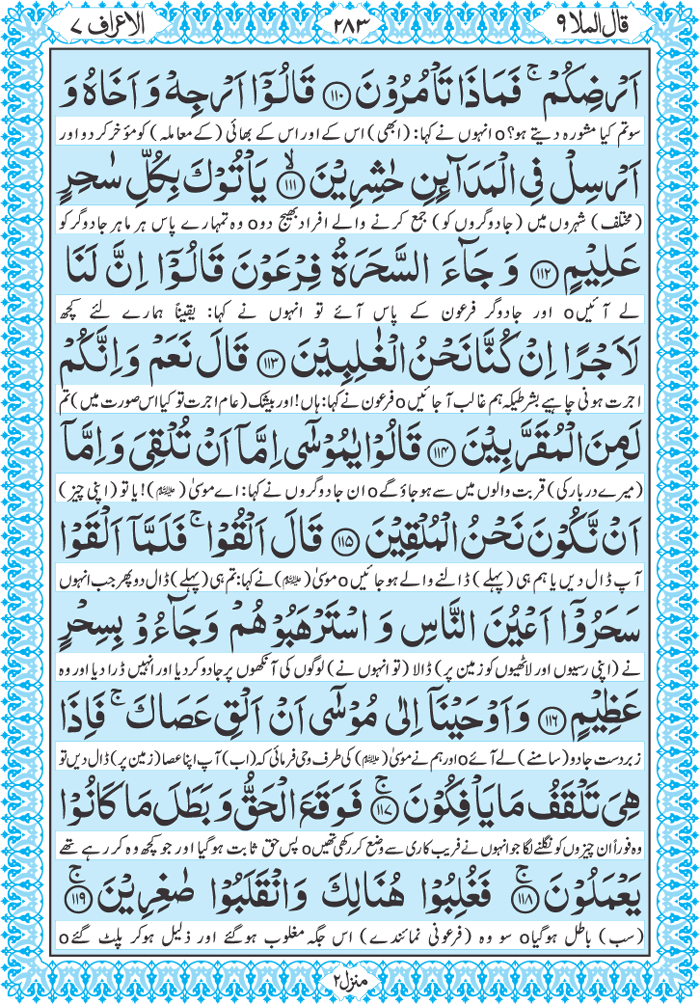 قال الملا ٩
٢٨٣
الاعراف ٧
اَرْضِكُمْ ۚ فَمَاذَا تَاْمُرُوْنَ ﴿۱۱۰﴾ قَالُوْۤا اَرْجِهْ وَ اَخَاهُ وَ
سو تم کیا مشورہ دیتے ہو؟o انہوں نے کہا: (ابھی) اس کے اور اس کے بھائی (کے معاملہ) کو مؤخر کر دو اور
اَرْسِلْ فِی الْمَدَآئِنِ حٰشِرِیْنَ ﴿۱۱۱﴾ۙ یَاْتُوْكَ بِكُلِّ سٰحِرٍ
(مختلف) شہروں میں (جادوگروں کو) جمع کرنے والے افراد بھیج دوo وہ تمہارے پاس ہر ماہر جادوگر کو
عَلِیْمٍ ﴿۱۱۲﴾ وَ جَآءَ السَّحَرَةُ فِرْعَوْنَ قَالُوْۤا اِنَّ لَنَا
لے آئیںo اور جادوگر فرعون کے پاس آئے تو انہوں نے کہا: یقیناً ہمارے لئے کچھ
لَاَجْرًا اِنْ كُنَّا نَحْنُ الْغٰلِبِیْنَ ﴿۱۱۳﴾ قَالَ نَعَمْ وَ اِنَّكُمْ
اجرت ہونی چاہیے بشرطیکہ ہم غالب آ جائیںo فرعون نے کہا: ہاں! اور بیشک (عام اجرت تو کیا اس صورت میں) تم
لَمِنَ الْمُقَرَّبِیْنَ ﴿۱۱۴﴾ قَالُوْا یٰمُوْسٰۤی اِمَّاۤ اَنْ تُلْقِیَ وَ اِمَّاۤ
(میرے دربار کی) قربت والوں میں سے ہو جاؤ گےo ان جادوگروں نے کہا: اے موسٰی (علیہ السلام)! یا تو (اپنی چیز)
اَنْ نَّكُوْنَ نَحْنُ الْمُلْقِیْنَ ﴿۱۱۵﴾ قَالَ اَلْقُوْا ۚ فَلَمَّاۤ اَلْقَوْا
آپ ڈال دیں یا ہم ہی (پہلے) ڈالنے والے ہو جائیںo موسٰی (علیہ السلام) نے کہا: تم ہی (پہلے) ڈال دو پھر جب انہوں
سَحَرُوْۤا اَعْیُنَ النَّاسِ وَ اسْتَرْهَبُوْهُمْ وَ جَآءُوْ بِسِحْرٍ
نے (اپنی رسیوں اور لاٹھیوں کو زمین پر) ڈالا (تو انہوں نے) لوگوں کی آنکھوں پر جادو کر دیا اور انہیں ڈرا دیا اور وہ
عَظِیْمٍ ﴿۱۱۶﴾ وَ اَوْحَیْنَاۤ اِلٰی مُوْسٰۤی اَنْ اَلْقِ عَصَاكَ ۚ فَاِذَا
زبردست جادو (سامنے) لے آئےo اور ہم نے موسٰی (علیہ السلام) کی طرف وحی فرمائی کہ (اب) آپ اپنا عصا (زمین پر) ڈال دیں تو
هِیَ تَلْقَفُ مَا یَاْفِكُوْنَ ﴿۱۱۷﴾ۚ فَوَقَعَ الْحَقُّ وَ بَطَلَ مَا كَانُوْا
وہ فوراً ان چیزوں کو نگلنے لگا جو انہوں نے فریب کاری سے وضع کر رکھی تھیںo پس حق ثابت ہو گیا اور جو کچھ وہ کر رہے تھے
یَعْمَلُوْنَ ﴿۱۱۸﴾ۚ فَغُلِبُوْا هُنَالِكَ وَ انْقَلَبُوْا صٰغِرِیْنَ ﴿۱۱۹﴾ۚ
(سب) باطل ہوگیاo سو وہ (فرعونی نمائندے) اس جگہ مغلوب ہوگئے اور ذلیل ہوکر پلٹ گئےo
منزل ٢